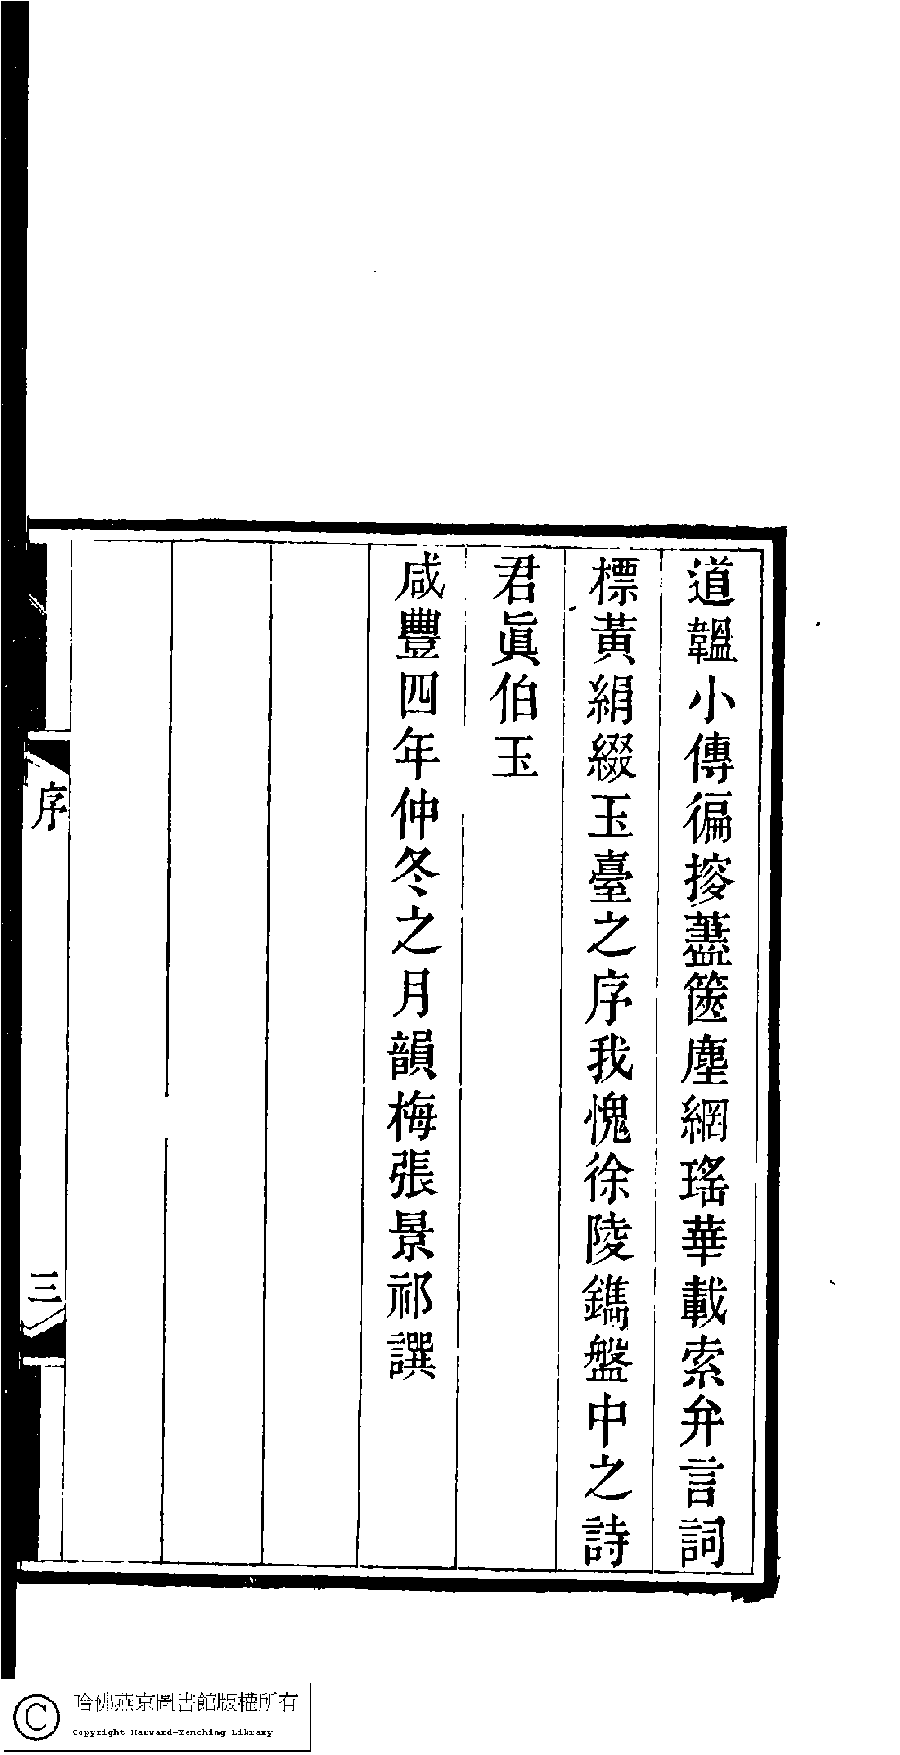 道韞小傳徧㨹藎篋塵網瑤華載索弁言詞
標黃絹綴玉臺之序我愧徐陵鐫盤中之詩
君眞伯玉
咸豐四年仲冬之月韻梅張景祁譔
序
三
哈佛燕京圖書館版權所有
Copyright Harvard-Yenching Library